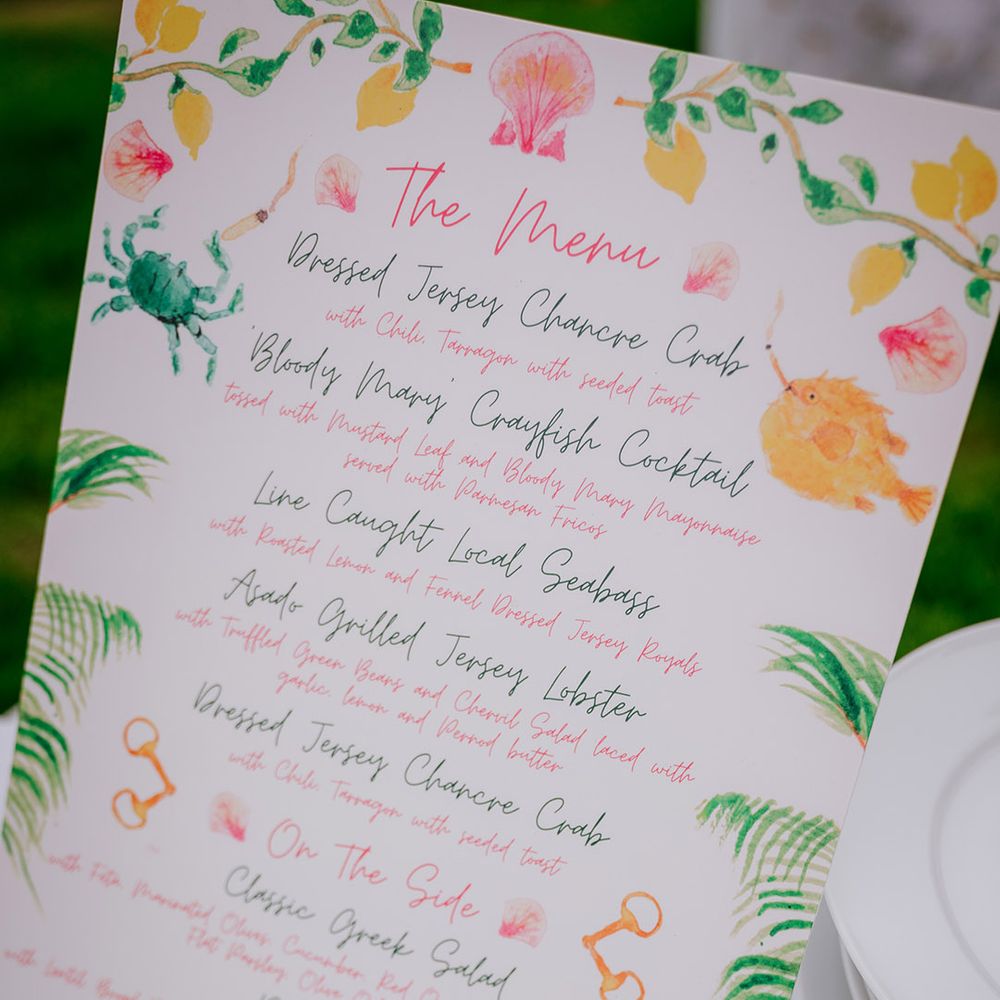 The Menu
Dressed Jersey Chancre Crab
with Chili, Tarragon with seeded toast
'Bloody Mary' Crayfish Cocktail
tossed with Mustard Leaf and Bloody Mary Mayonnaise
served with Parmesan Fricos
Line Caught Local Seabass
with Roasted Lemon and Fennel Dressed Jersey Royals
Asado Grilled Jersey Lobster
with Truffled Green Beans and Chervil Salad laced with
garlic, lemon and Pernod butter
Dressed Jersey Chancre Crab
with Chili, Tarragon with seeded toast
On The Side
Classic Greek Salad
with Feta, Marinated Olives, Cucumber, Red
Flat Parsley, Olive
with